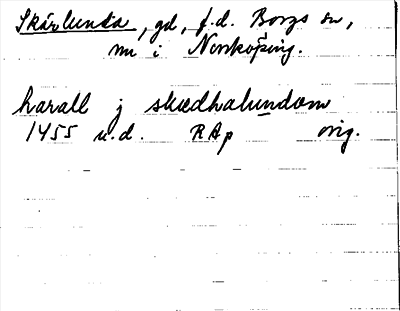 Skärlunda, gd, f.d. Borgs sn,
nu i Norrköping.
haralt j skædhalundom
1455 u.d. RAp orig.